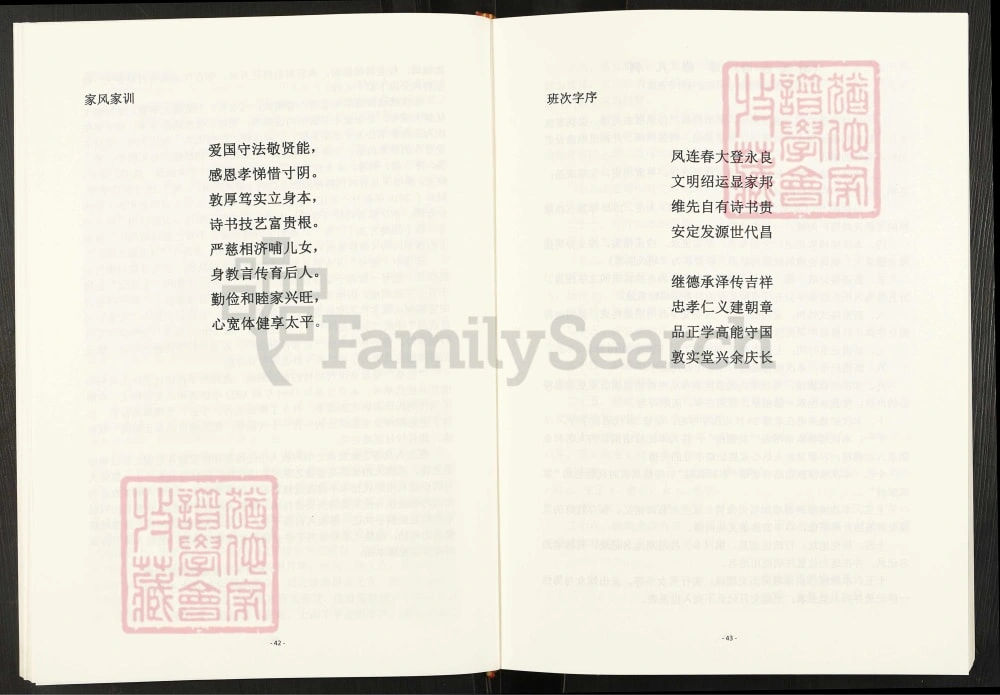 家风家训
爱国守法敬贤能，
感恩孝悌惜寸阴。
敦厚笃实立身本，
诗书技艺富贵根。
严慈相济哺儿女，
身教言传育后人。
勤俭和睦家兴旺，
心宽体健享太平。
- 42 -
班次字序
凤连春大登永良
文明绍运显家邦
维先自有诗书贵
安定发源世代昌
继德承泽传吉祥
忠孝仁义建朝章
品正学高能守国
敦实堂兴余庆长
- 43 -
FamilySearch
猶他家
譜學會
收藏
猶他家
譜學會
收藏